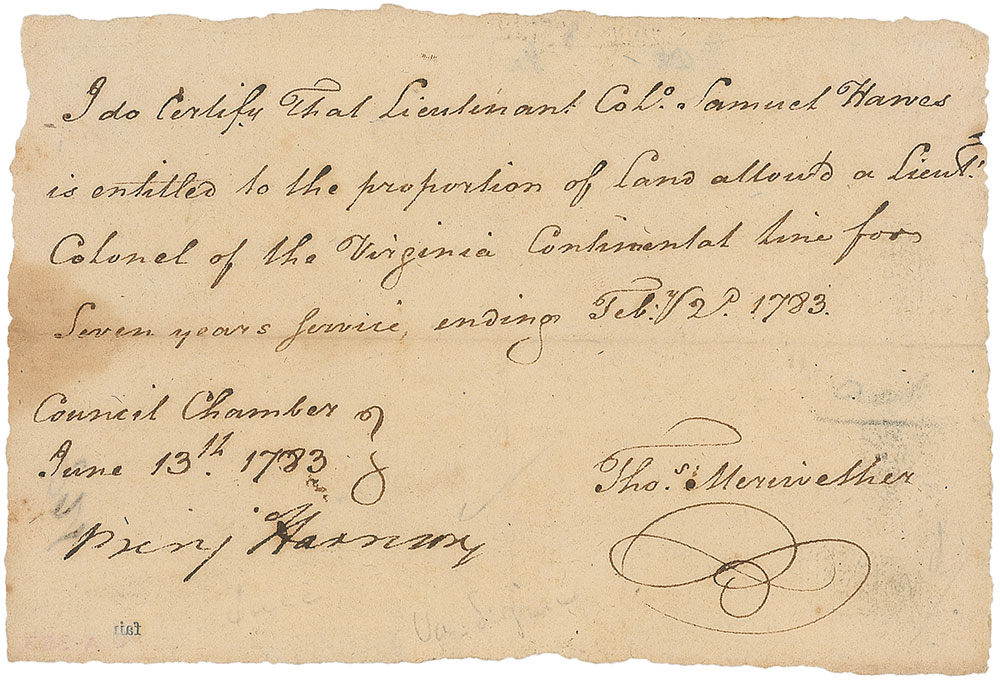 I do Certify That Lieutenant Colo. Samuel Hawes
is entitled to the proportion of Land allow'd a Lieut.
Colonel of the Virginia Continental line for
Seven years Service, ending Feb:y 2d. 1783.
Council Chamber
June 13th. 1783
Thos. Meriwether
Benj Harrison
fair